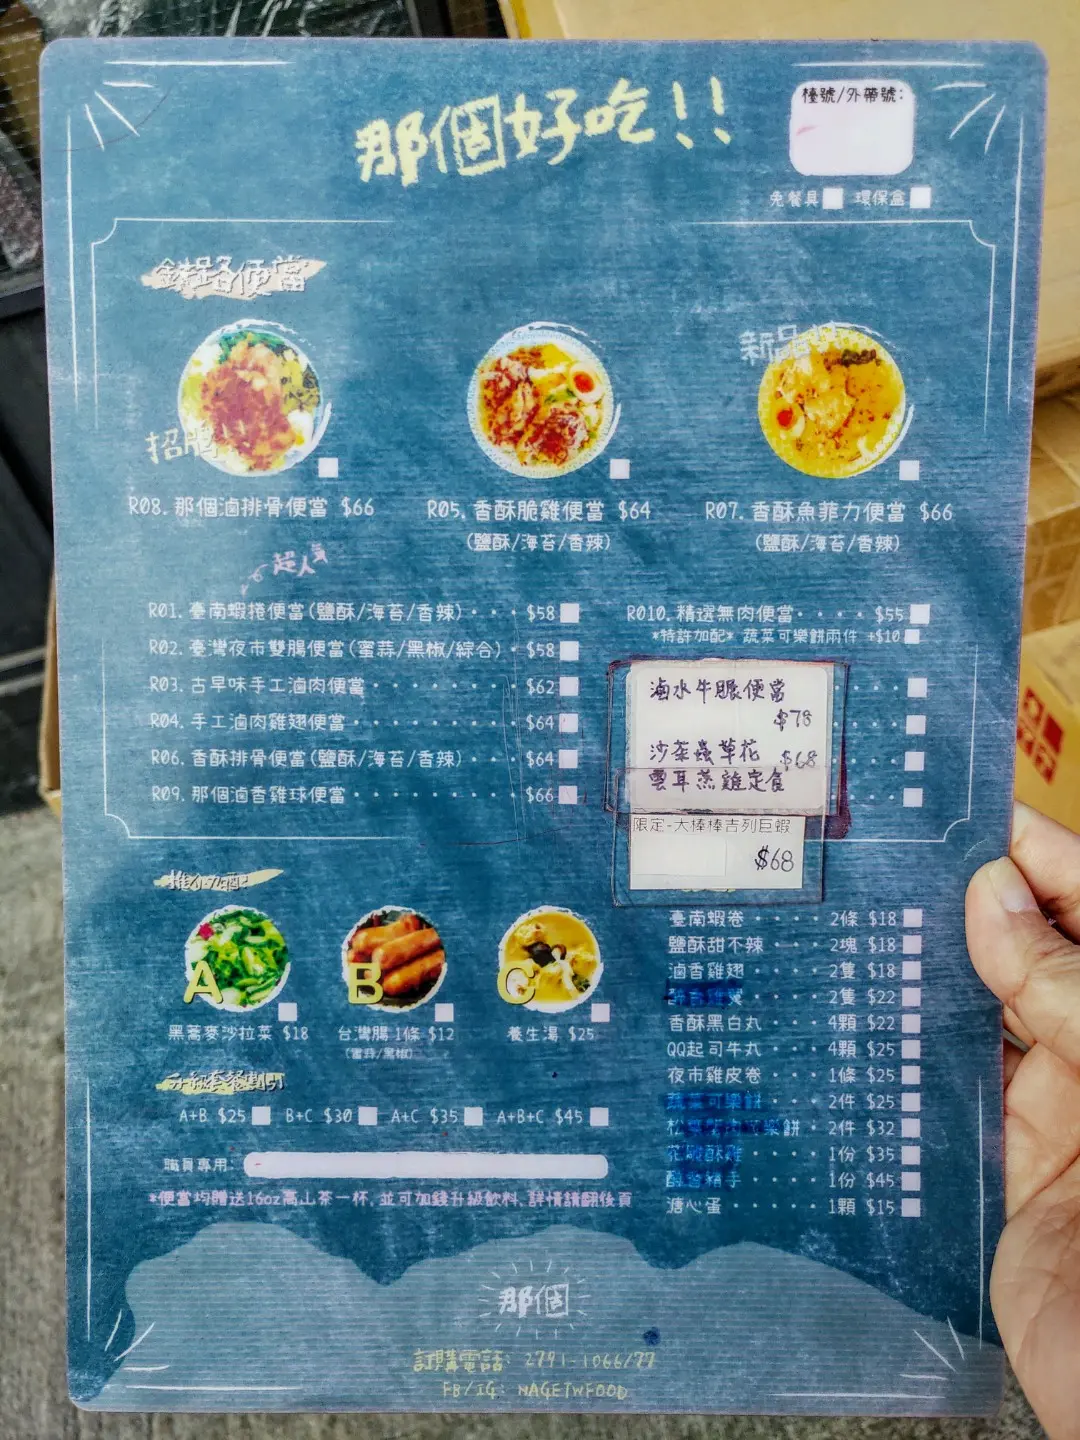 那個好吃!!
檯號/外帶號:
免餐具 環保盒
鐵路便當
新品
招牌
R08. 那個滷排骨便當 $66
R05. 香酥脆雞便當 $64
(鹽酥/海苔/香辣)
R07. 香酥魚菲力便當 $66
(鹽酥/海苔/香辣)
超人氣
R01. 臺南蝦捲便當(鹽酥/海苔/香辣)・・・$58
R02. 臺灣夜市雙腸便當(蜜蒜/黑椒/綜合)・$58
R03. 古早味手工滷肉便當・・・・・・・・$62
R04. 手工滷肉雞翅便當・・・・・・・・・$64
R06. 香酥排骨便當(鹽酥/海苔/香辣)・・・$64
R09. 那個滷香雞球便當・・・・・・・・・$66
R010. 精選無肉便當・・・・$55
*特許加配* 蔬菜可樂餅兩件 +$10
滷水牛𦟌便當
$78
沙茶蟲草花 $68
雲耳蒸雞定食
限定-大棒棒吉列巨蝦
$68
推介加配
A
黑蕎麥沙拉菜 $18
B
台灣腸1條 $12
(蜜蒜/黑椒)
C
養生湯 $25
升級套餐劃引
A+B $25 B+C $30 A+C $35 A+B+C $45
職員專用:
*便當均贈送16oz高山茶一杯,並可加錢升級飲料,詳情請翻後頁
臺南蝦卷・・・・2條 $18
鹽酥甜不辣・・・2塊 $18
滷香雞翅・・・・2隻 $18
醉香雞翼・・・・2隻 $22
香酥黑白丸・・・4顆 $22
QQ起司牛丸・・・4顆 $25
夜市雞皮卷・・・1條 $25
蔬菜可樂餅・・・2件 $25
可樂餅・2件 $32
花雕酥雞・・・・1份 $35
1份 $45
溏心蛋・・・・・1顆 $15
那個
訂購電話: 2791-1066/77
FB/IG: NAGETWFOOD